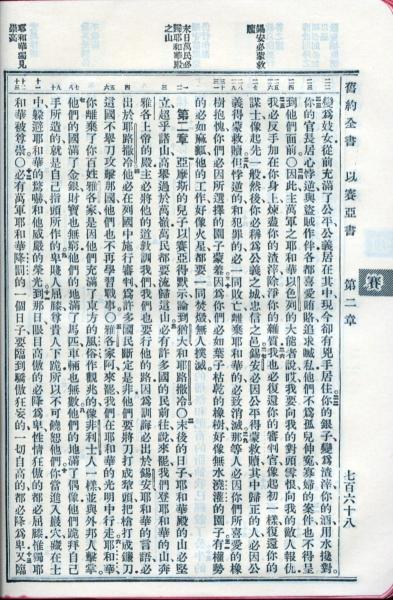 舊約全書 以賽亞書 第二章 七百六十八
賽
錫安必蒙救
贖
變爲妓女從前充滿了公平公義居在其中現今卻有兇手居住你的銀子變爲渣滓你的酒用水攙對
你的官長居心悖逆與盜賊作伴各都喜愛賄賂追求贓私他們不爲孤兒伸冤寡婦的案件也不得呈
到他們面前○因此主萬軍之耶和華以色列的大能者說哎我要向我的對頭雪恨向我的敵人報仇
我必反手加在你身上煉盡你的渣滓除淨你的雜質我也必復還你的審判官像起初一樣復還你的
謀士像起先一般然後你必稱爲公義之城忠信之邑錫安必因公平得蒙救贖其中歸正的人必因公
義得蒙救贖但悖逆的和犯罪的必一同敗亡離棄耶和華的必致消滅那等人必因你們所喜愛的橡
樹抱愧你們必因所選擇的園子蒙羞因爲你們必如葉子枯乾的橡樹好像無水澆灌的園子有權勢
的必如麻瓤他的工作好像火星都要一同焚燬無人撲滅
末日萬民必
耶和華殿
之山
第二章 亞摩斯的兒子以賽亞得默示論到猶大和耶路撒冷○末後的日子耶和華殿的山必堅
立超乎諸山高舉過於萬嶺萬民都要流歸這山必有許多國的民前往說來罷我們登耶和華的山奔
雅各上帝的殿主必將他的道敎訓我們我們也要行他的路因爲訓誨必出於錫安耶和華的言語必
出於耶路撒冷他必在列國中施行審判爲許多國民斷定是非他們要將刀打成犂頭把槍打成鐮刀
這國不舉刀攻擊那國他們也不再學習戰事○雅各家阿來罷我們在耶和華的光明中行走耶和華
你離棄了你百姓雅各家是因他們充滿了東方的風俗作觀兆的像非利士人一樣並與外邦人擊掌
他們的國滿了金銀財寶也無窮他們的地滿了馬匹車輛也無數他們的地滿了偶像他們跪拜自己
手所造的就是自己指頭所作的卑賤人屈膝尊貴人下跪所以不可饒恕他們你當進入巖穴藏在土
耶和華獨見
崇高
中躲避耶和華的驚嚇和他威嚴的榮光到那日眼目高傲的必降爲卑性情狂傲的都必屈膝惟獨耶
和華被尊崇○必有萬軍耶和華降罰的一個日子要臨到驕傲狂妄的一切自高的都必降爲卑又臨